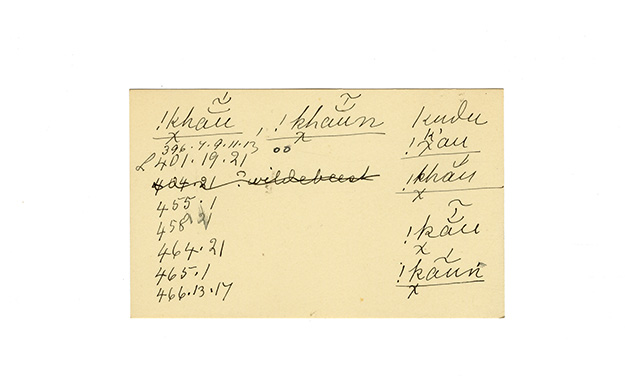 !khãu̅ , !khãu̅n
396.7.9.11.13 oo
L 401.19.21
404.21 ? wildebeest
455.1
458
464.21
465.1
466.13.17
!χau
!khău
!kãu
!kãun